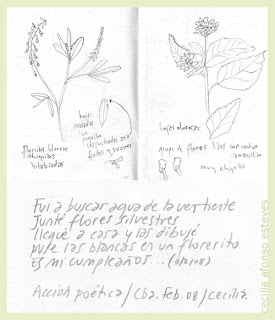 florcitas blancas
chiquitas
bilabiadas
hojas
ovaladas
un
poquito
finitas y suaves
hojas olorosas
grupo de flores lilas con centro
amarillo
muy chiquitas
Fui a buscar agua de la vertiente
Junté flores silvestres
llegué a casa y las dibujé
puse las blancas en un florerito
Es mi cumpleaños...
Acción poética / Cba. feb. 08 / cecilia.
cecilia afonso esteves